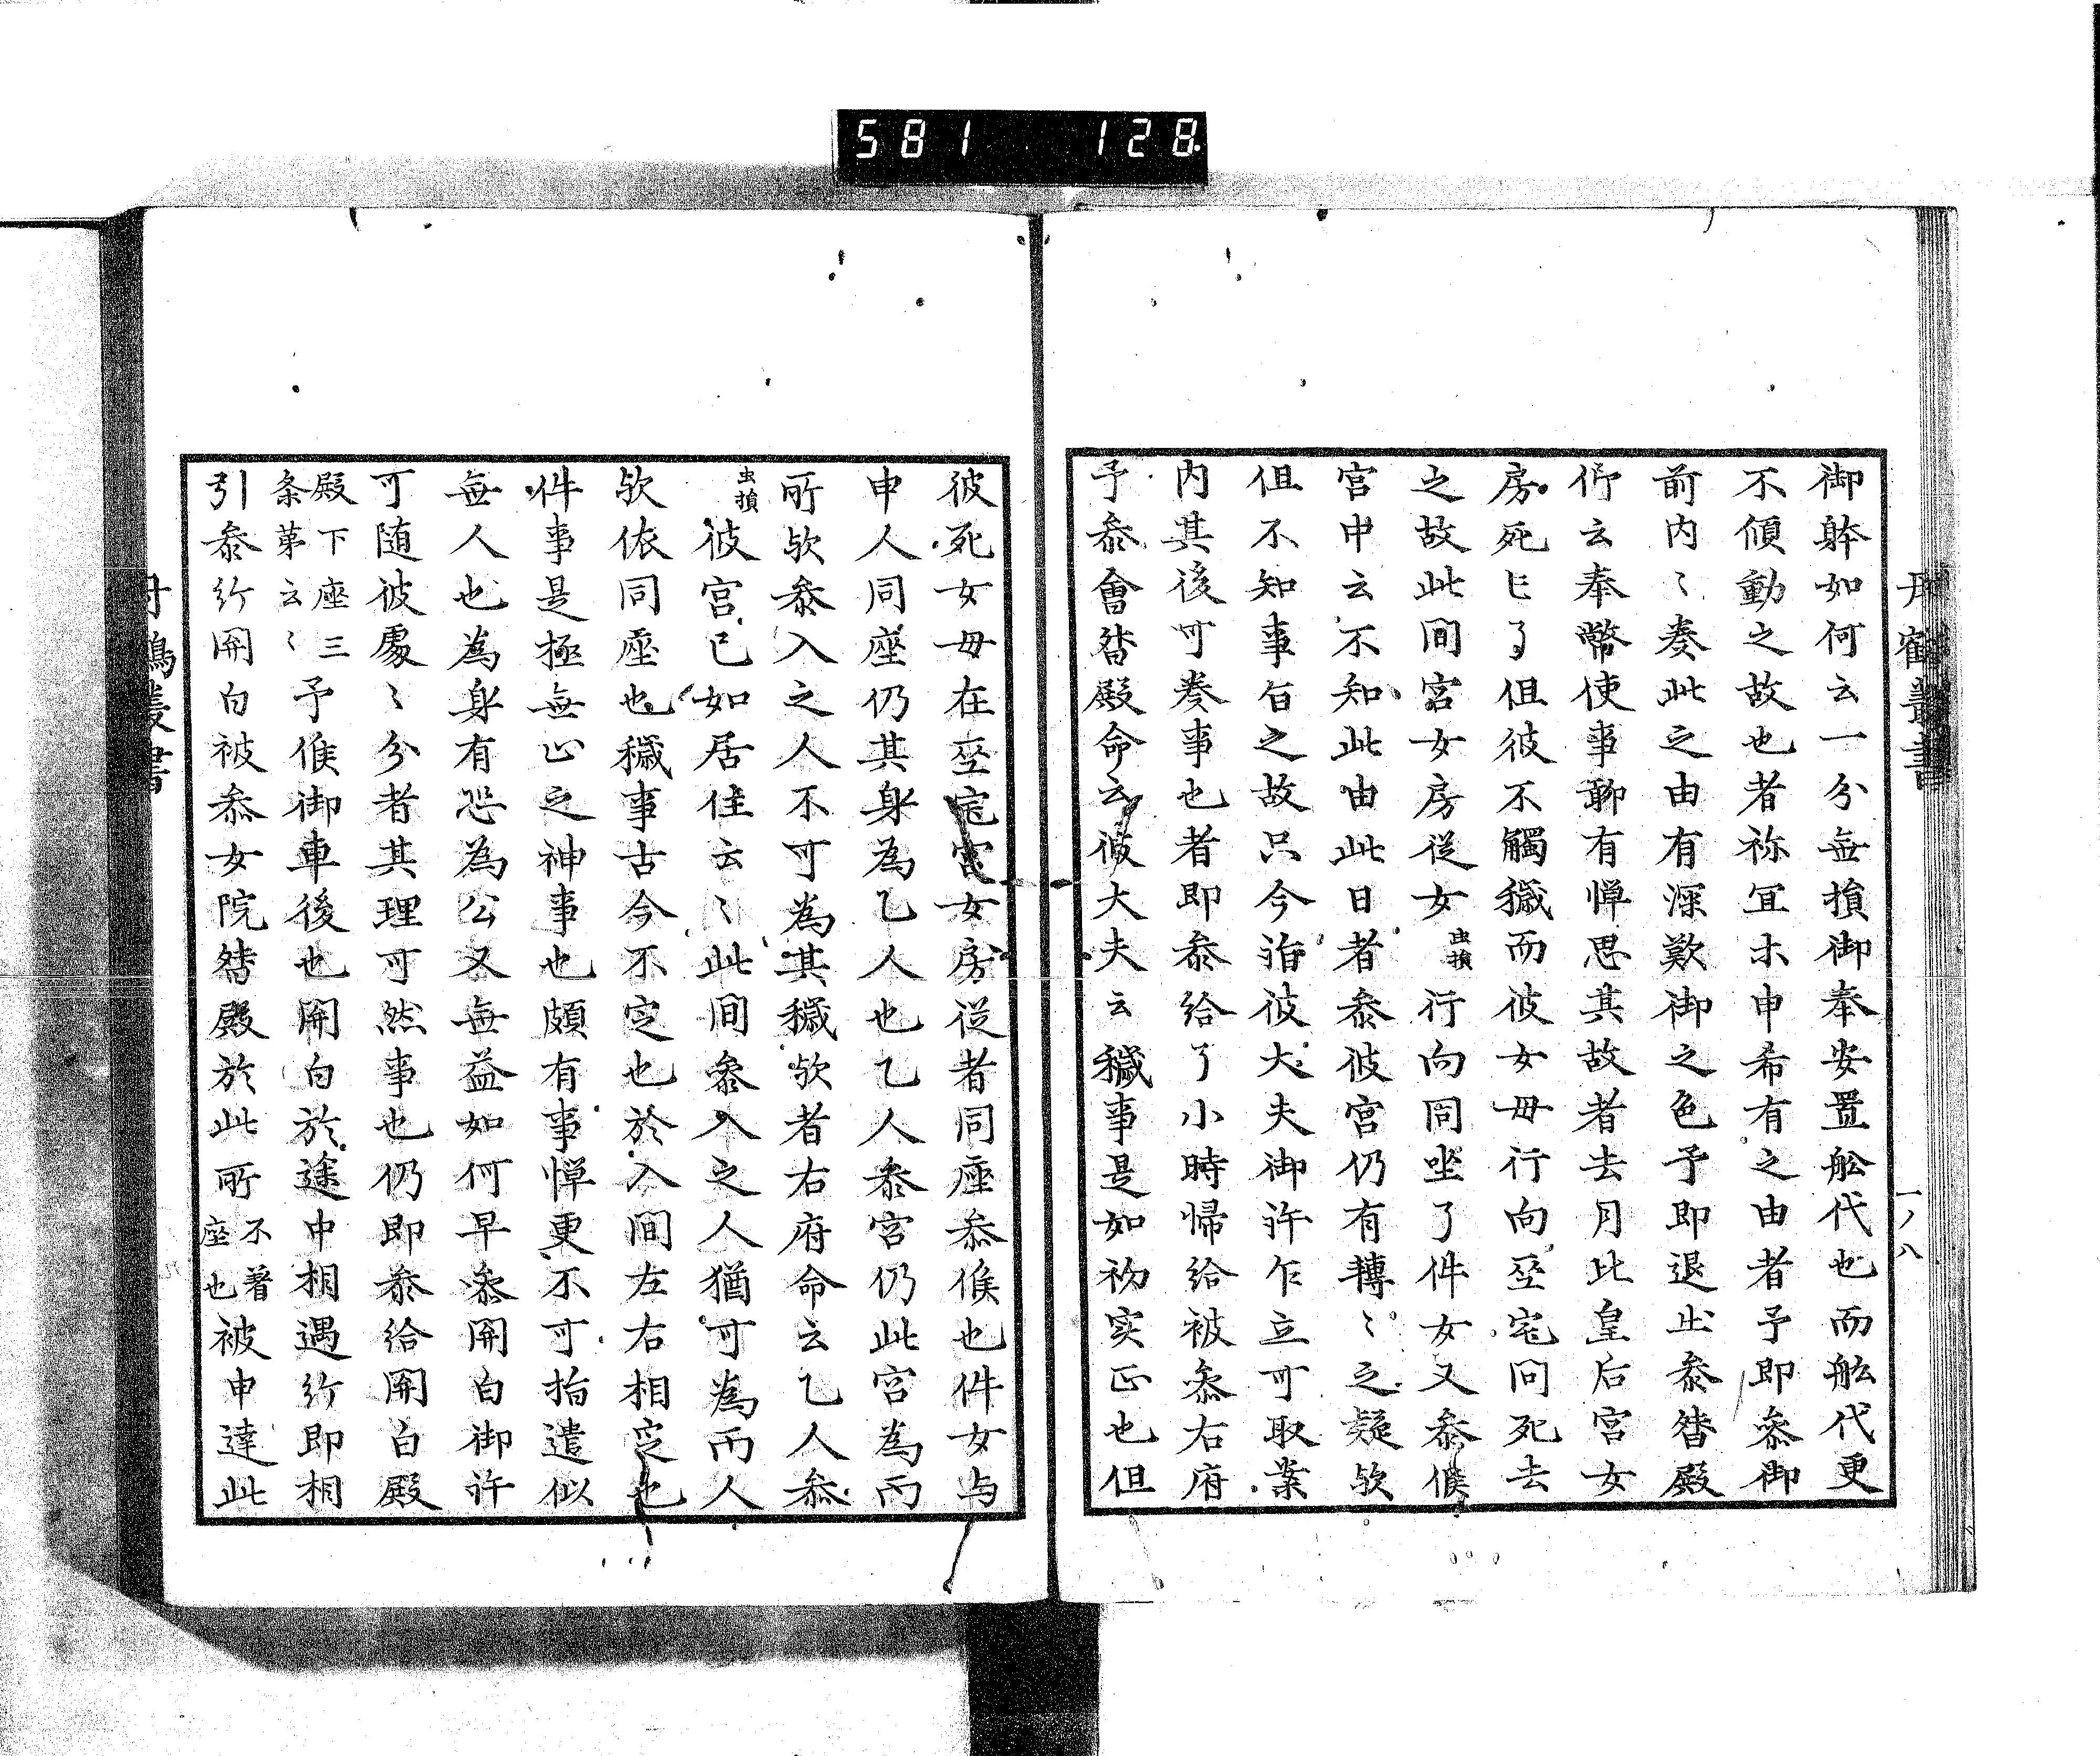 581 128
丹鶴叢書
一ノ八
御躰如何云一分無損御奉安置舩代也而舩代更
不傾動之故也者祢冝木申希有之由者予即参御
前内〻奏此之由有深歎御之色予即退出参𣈆殿
仰云奉幣使事聊有憚思其故者去月比皇后宮女
房死亡了但彼不觸穢而彼女母行向巫宅問死去
之故此間宮女房従女虫損行向同坐了件女又参候
宮中云不知此由此日者参彼宮仍有轉〻之疑欤
但不知事旨之故只今詣彼大夫御許乍立可取案
内其後可奏事也者即参給了小時帰給被参右府
予参會𣈆殿命云彼大夫云穢事是如初実正也但
彼死女母在巫宅宮女房従者同座参候也件女与
申人同座仍其身為乙人也乙人参宮仍此宮為丙
所欤参入之人不可為其穢欤者右府命云乙人参
虫損彼宮已如居住云〻此間参入之人猶可為丙人
欤依同座也穢事古今不定也於入間左右相定也
件事是極無止之神事也頗有事憚更不可指遣似
無人也為身有恐為公又無益如何早参開白御許
可随彼處〻分者其理可然事也仍即参給開白殿
殿下座三条第云〻予候御車後也開白於途中相遇給即相
引参給開白被参女院𣈆殿於此所不着座也被申達此
丹鶴叢書